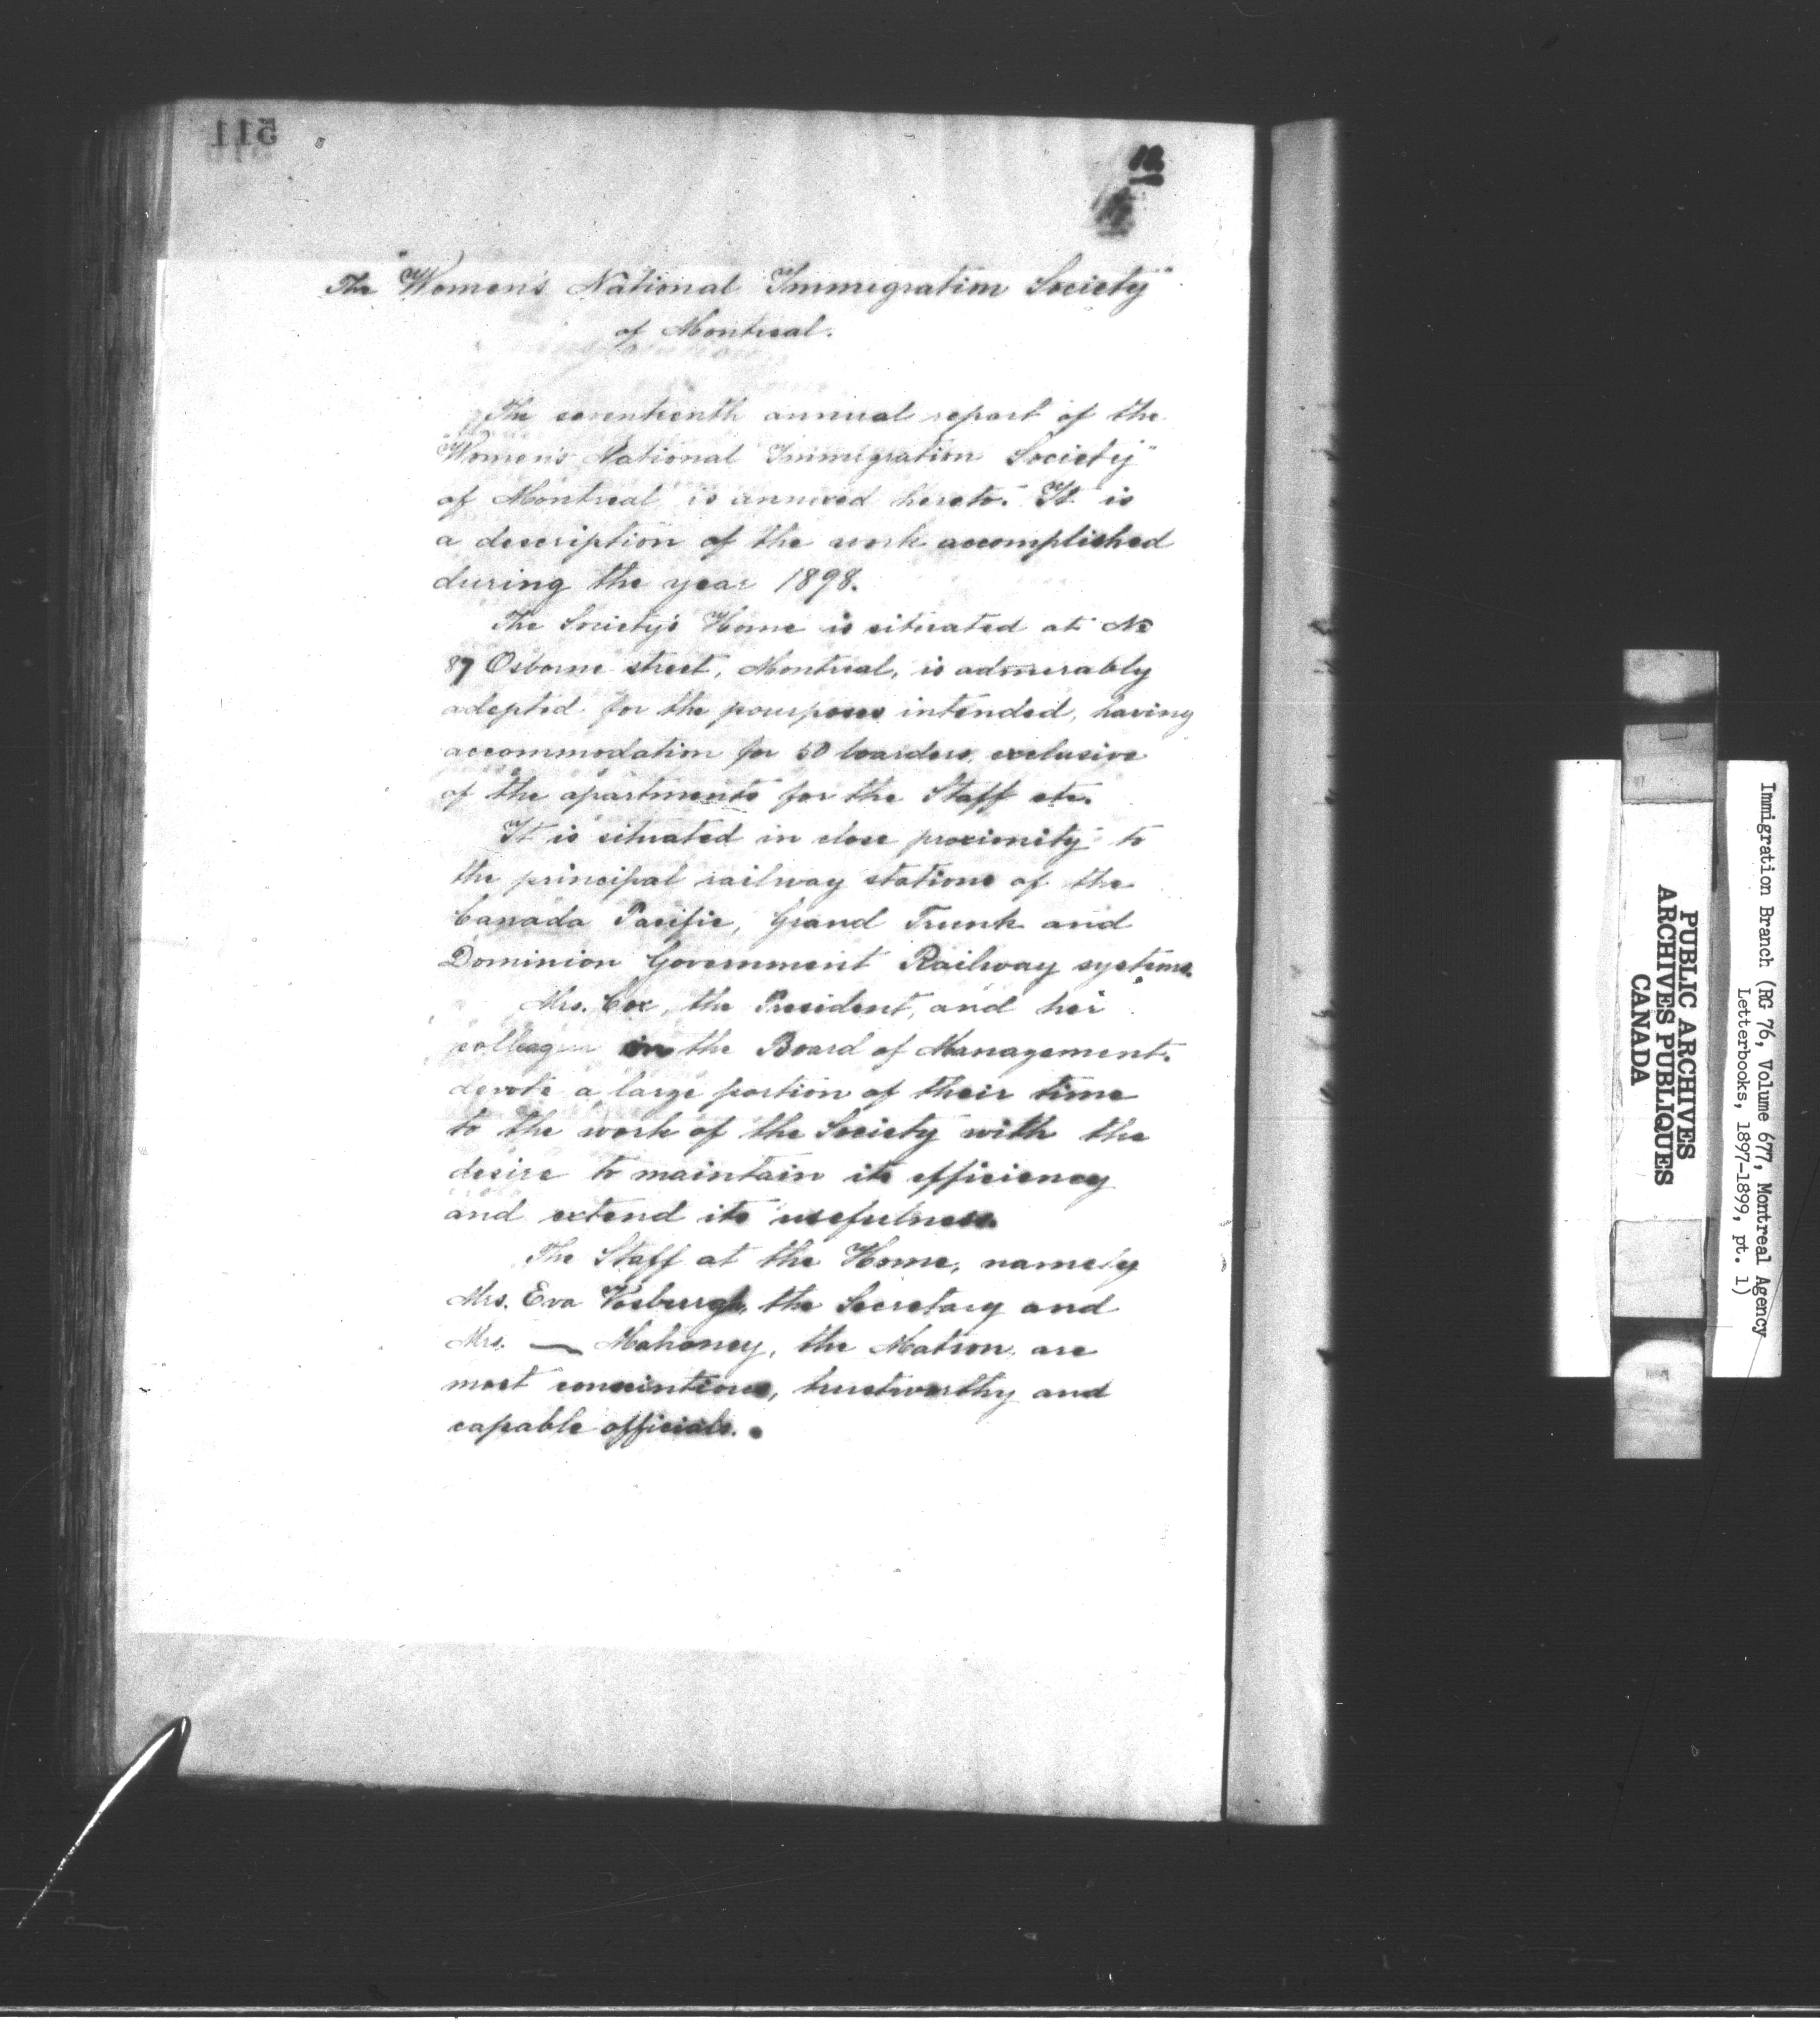 511
18
The "Women's National Immigration Society"
of Montreal.
The seventeenth annual report of the
"Women's National Immigration Society"
of Montreal is annexed hereto. It is
a description of the work accomplished
during the year 1898.
The Society's Home is situated at No
87 Osborne street, Montreal, is admirably
adapted for the pourposes intended, having
accommodation for 50 boarders, exclusive
of the apartments for the Staff etc.
It is situated in close proximity to
the principal railway stations of the
Canada Pacific, Grand Trunk and
Dominion Government Railway systems.
Mrs. Cox, the President, and her
in the Board of Management.
devote a large portion of their time
to the work of the Society with the
desire to maintain its efficiency
and extend its usefulness.
The Staff at the Home, namely
Mrs. Eva Vosburgh, the Secretary and
Mrs. — Mahoney, the Matron, are
most conscintious, trustworthy and
capable officials.
Immigration Branch (RG 76, Volume 677, Montreal Agency
Letterbooks, 1897-1899, pt. 1)
PUBLIC ARCHIVES
ARCHIVES PUBLIQUES
CANADA